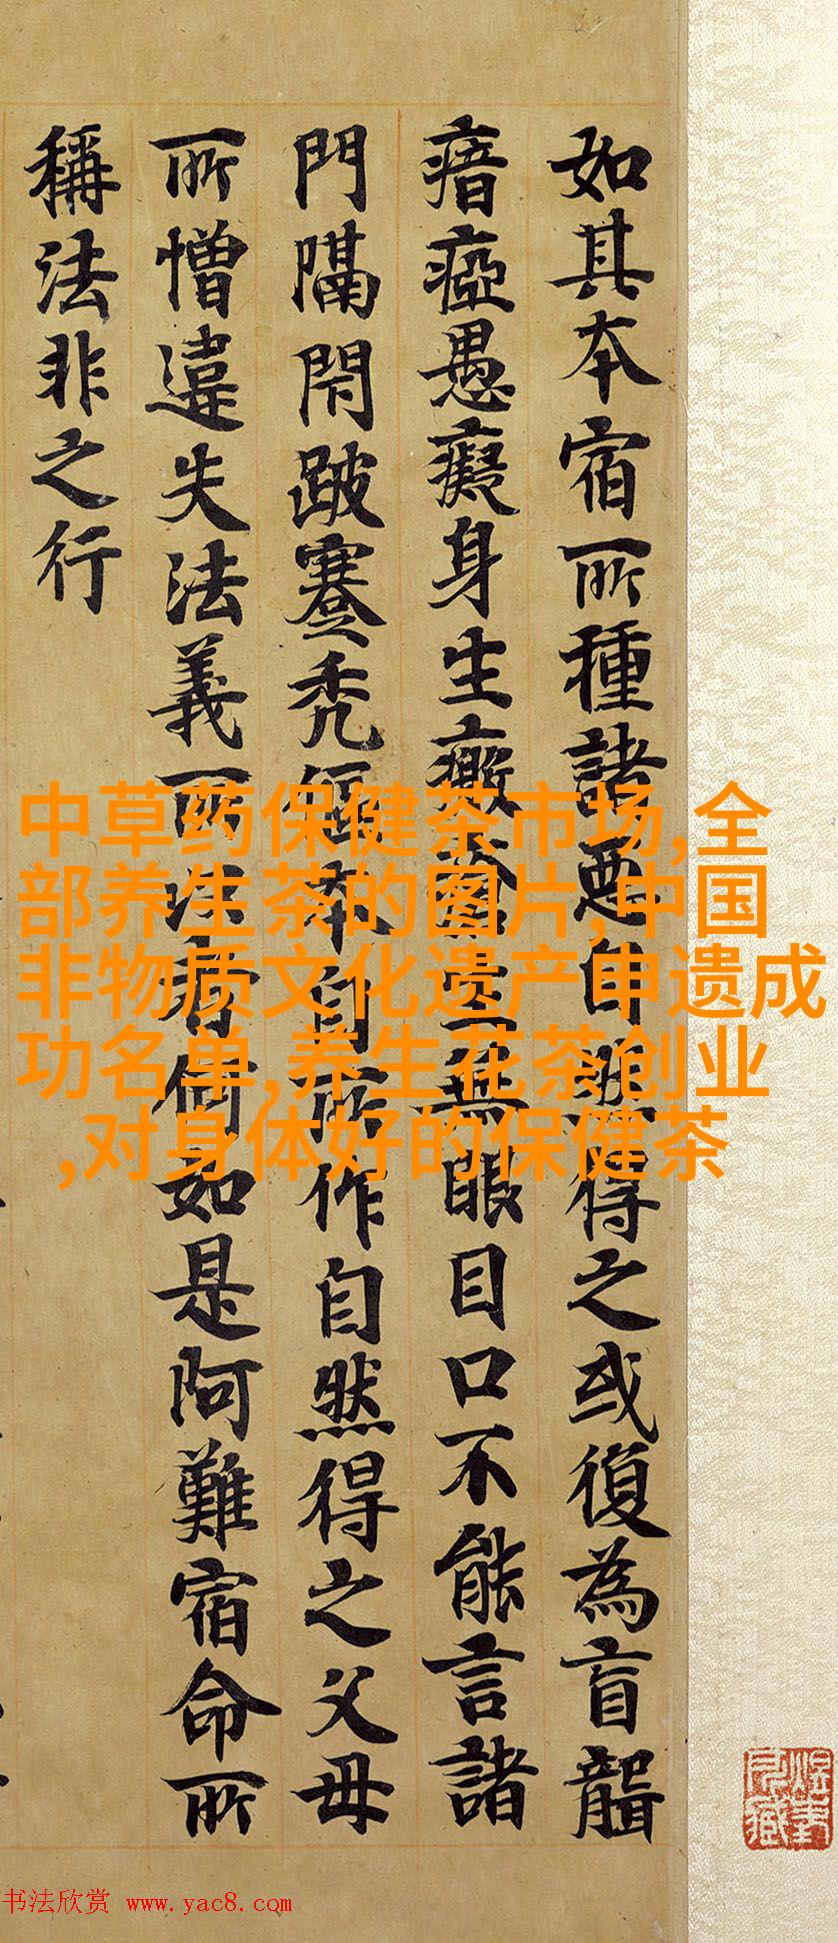 如其本宿所種諸惡自然得之或復為盲聾
瘖瘂愚癡身生無眼目口不能言諸
門隔閇跛蹇禿本自所作自然得之父母
所憎違失法義所以者何如是阿難宿命所
稱法非之行
中草药保健茶市场,全
部养生茶的图片,中国
非物质文化遗产申遗成
功名单,养生花茶创业
,对身体好的保健茶
书法欣赏 www.yac8.com